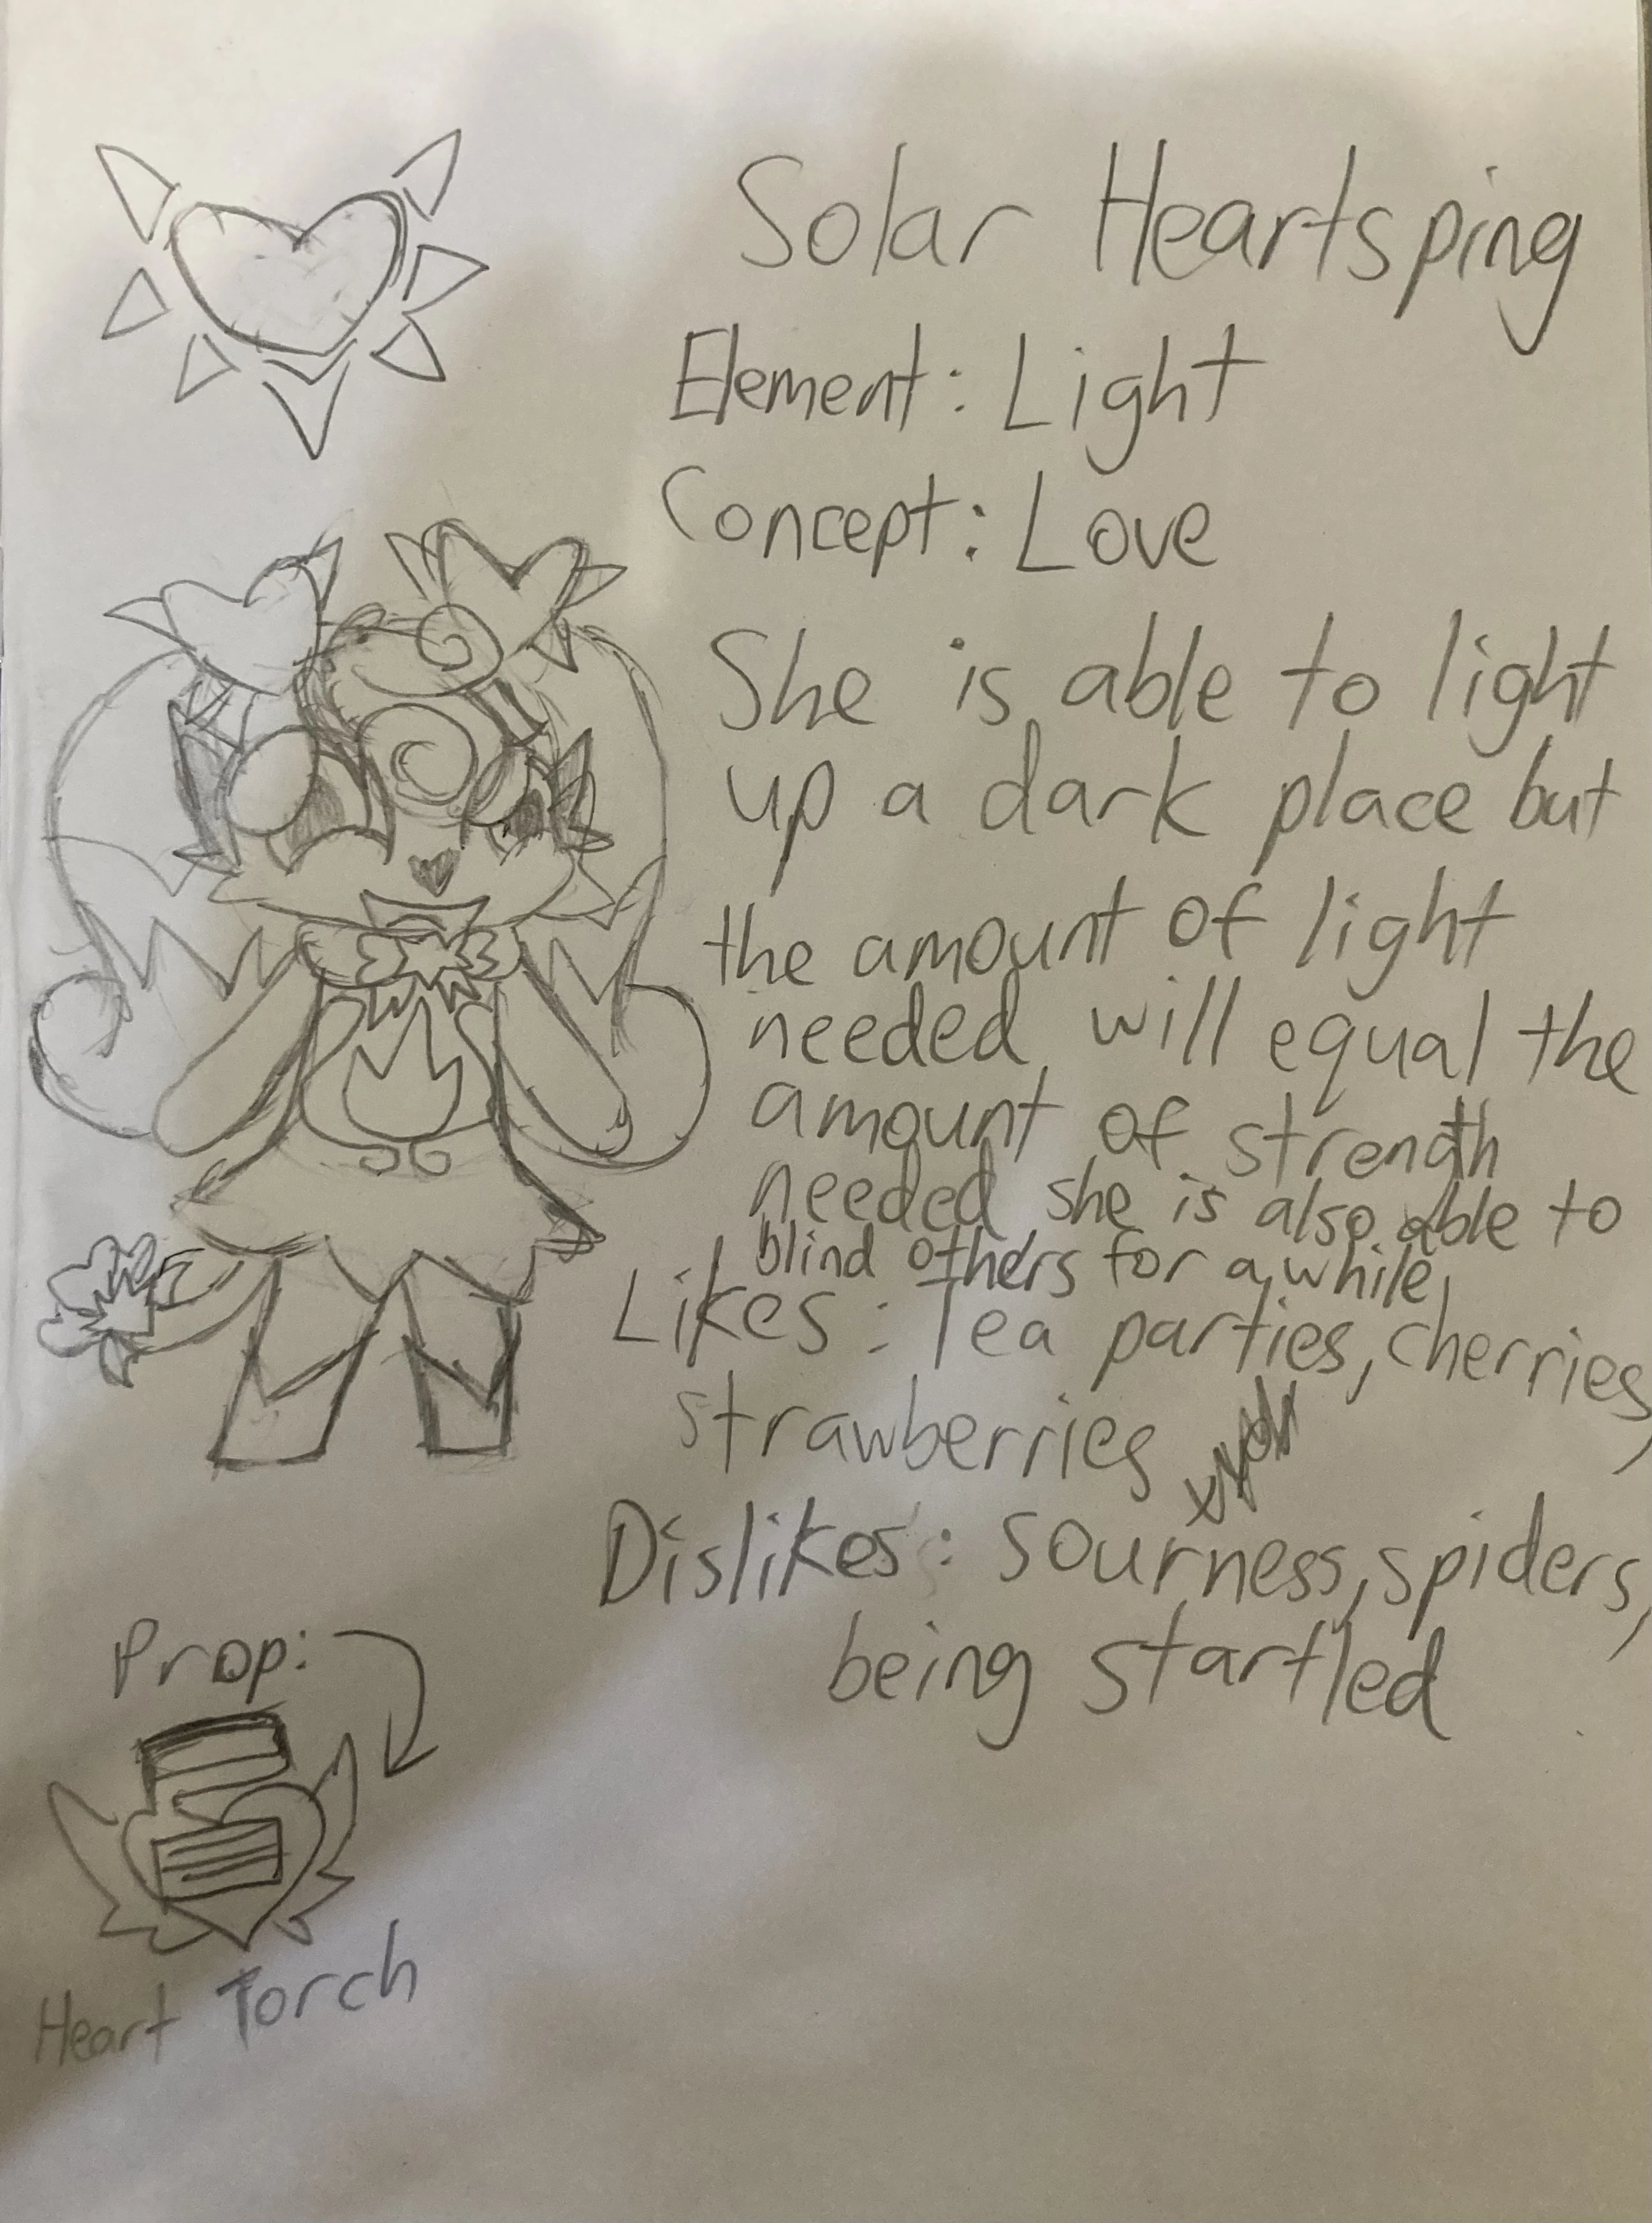 Solar Heartsping
Element: Light
Concept: Love
She is able to light
up a dark place but
the amount of light
needed will equal the
amount of strength
needed she is also able to
blind others for a while,
Likes: Tea parties, cherries,
strawberries
Dislikes: sourness, spiders,
being startled
Prop:
Heart Torch